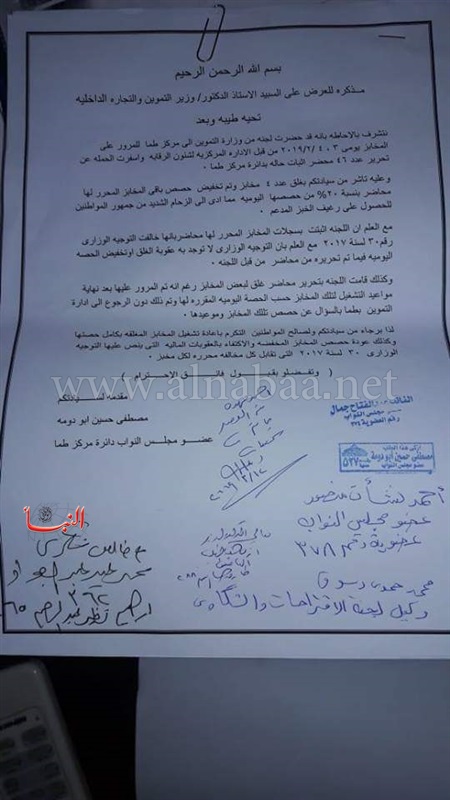 بسم الله الرحمن الرحيم
مذكره للعرض على السيد الاستاذ الدكتور/ وزير التموين والتجاره الداخليه
تحيه طيبه وبعد
نتشرف بالاحاطه بانه قد حضرت لجنه من وزارة التموين الى مركز طما للمرور على
المخابز يومى ٣ ، ٢٠١٩/٢/٤ من قبل الاداره المركزيه لشئون الرقابه واسفرت الحمله عن
تحرير عدد ٤٦ محضر اثبات حاله بدائرة مركز طما .
وعليه تاشر من سيادتكم بغلق عدد ٤ مخابز وتم تخفيض حصص باقي المخابز المحرر لها
محاضر بنسبة ٢٠% من حصصها اليوميه مما ادى الى الزحام الشديد من جمهور المواطنين
للحصول على رغيف الخبز المدعم .
مع العلم ان اللجنه اثبتت بسجلات المخابز المحرر لها محاضربانها خالفت التوجيه الوزارى
رقم ٣٠ لسنة ٢٠١٧ مع العلم بان التوجيه الوزارى لا توجد به عقوبة الغلق اوتخفيض الحصه
اليوميه فيما تم تحريره من محاضر من قبل اللجنه .
وكذلك قامت اللجنه بتحرير محاضر غلق لبعض المخابز رغم انه تم المرور عليها بعد نهاية
مواعيد التشغيل لتلك المخابز حسب الحصة اليوميه المقرره لها وتم ذلك دون الرجوع الى ادارة
التموين بطما بالسؤال عن حصص تلك المخابز وموعيدها .
لذا برجاء من سيادتكم ولصالح المواطنين التكرم باعادة تشغيل المخابز المغلقه بكامل حصتها
وكذلك عودة حصص المخابز المخفضه والاكتفاء بالعقوبات الماليه التى ينص عليها التوجيه
الوزارى ٣٠ لسنة ٢٠١٧ التى تقابل كل مخالفه محرره لكل مخبز .
( وتفضلو بقبول فائق الاحترام )
مقدمه لسيادتكم
مصطفى حسين ابو دومه
عضو مجلس النواب دائرة مركز طما
www.alnabaa.net
الفتاح جمال
مجلس النواب
رقم العضوية
مصطفى حسين أبو دومة
عضو مجلس النواب
٥٢٧
أحمد نشأت منصور
عضو مجلس النواب
عضوية رقم ٣٧٨
وكيل لجنة الاقتراحات والشكاوى
النبأ